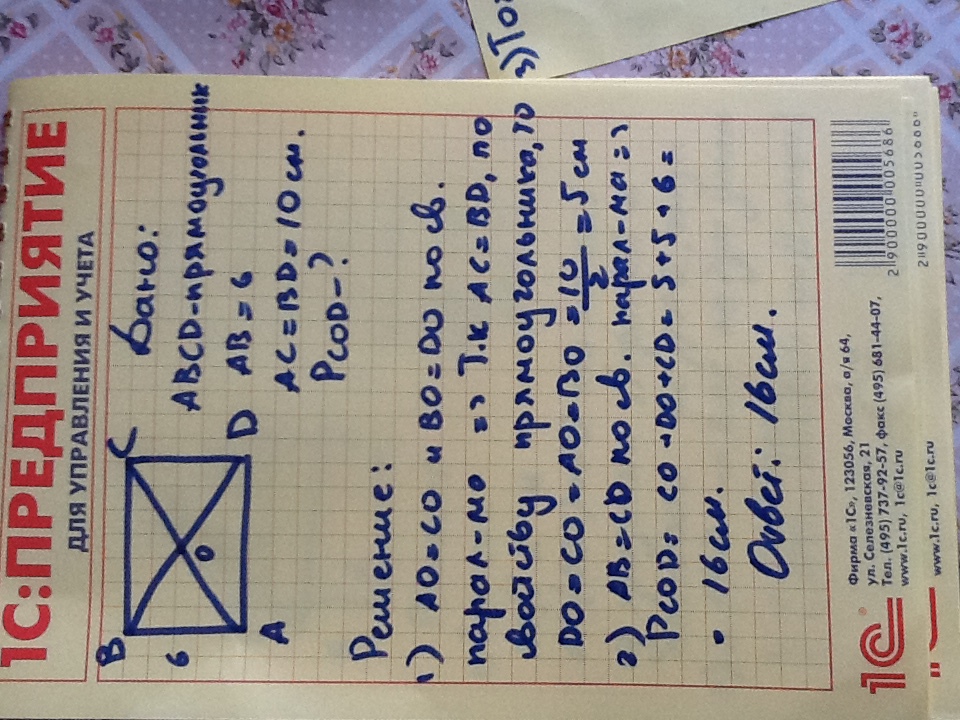 1С:ПРЕДПРИЯТИЕ
ДЛЯ УПРАВЛЕНИЯ И УЧЕТА
B
C
6
O
A
D
Дано:
ABCD-прямоугольник
AB = 6
AC = BD = 10 см.
PCOD - ?
Решение:
1) AO = CO и BO = DO по св.
парал-мо => т.к AC = BD, по
свойству прямоугольника, то
DO = CO = AO = BO = 10/2 = 5 см
2) AB = CD по св. парал-ма =>
PCOD = CO + DO + CD = 5 + 5 + 6 =
= 16 см.
Ответ: 16 см.
3) То
1С
®
Фирма «1С», 123056, Москва, а/я 64,
ул. Селезневская, 21
Тел. (495) 737-92-57, факс (495) 681-44-07,
www.1c.ru, 1c@1c.ru
2 900000 005686
www.1c.ru, 1c@1c.ru